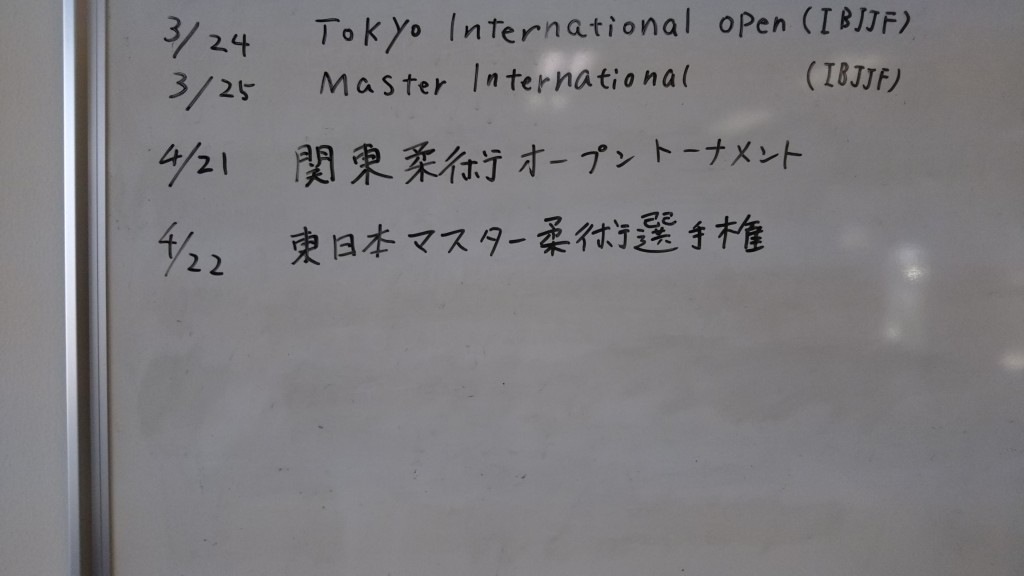 3/24 Tokyo International open (IBJJF)
3/25 Master International (IBJJF)
4/21 関東柔術オープントーナメント
4/22 東日本マスター柔術選手権